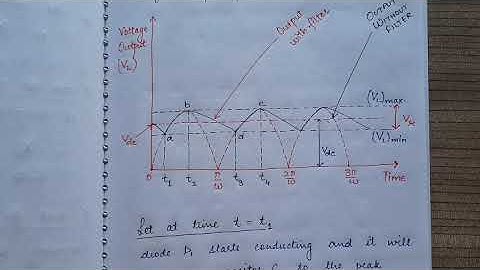 Voltage
Output
(VL)
Output
with filter
OUTPUT
WITHOUT
FILTER
b
c
(VL)max
Vdc
a
d
Vdc
(VL)min
0
t1
t2
π/ω
t3
t4
2π/ω
3π/ω
Time
Let at time t = t1
diode D1 starts conducting and it will
to the peak